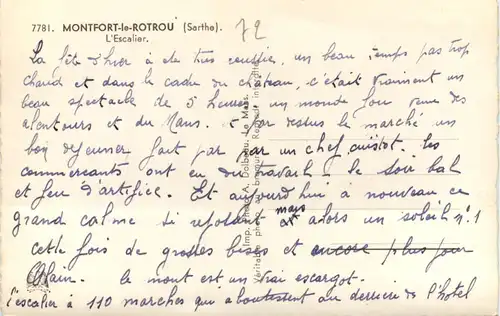 7781. MONTFORT-le-ROTROU (Sarthe).
L'Escalier.
72
La fête d'hier a été très réussie, un beau temps pas trop
chaud et dans le cadre du château, c'était vraiment un
beau spectacle de 5 heures un monde fou venu des
alentours et du Mans. et par dessus le marché un
bon déjeuner fait par par un chef cuistot. Les
commerçants ont eu du travail. le soir bal
et feu d'artifice. Et aujourd'hui à nouveau ce
grand calme si reposant mais et alors un soleil n°1
cette fois de grosses bises et encore plus pour
Alain. le mont est un vrai escargot.
l'escalier à 110 marches qui aboutissent au derrière de l'hôtel
Imp. Photo A. Dolbeau, Le Mans
Véritable photo au bromure - Reprod. interdite